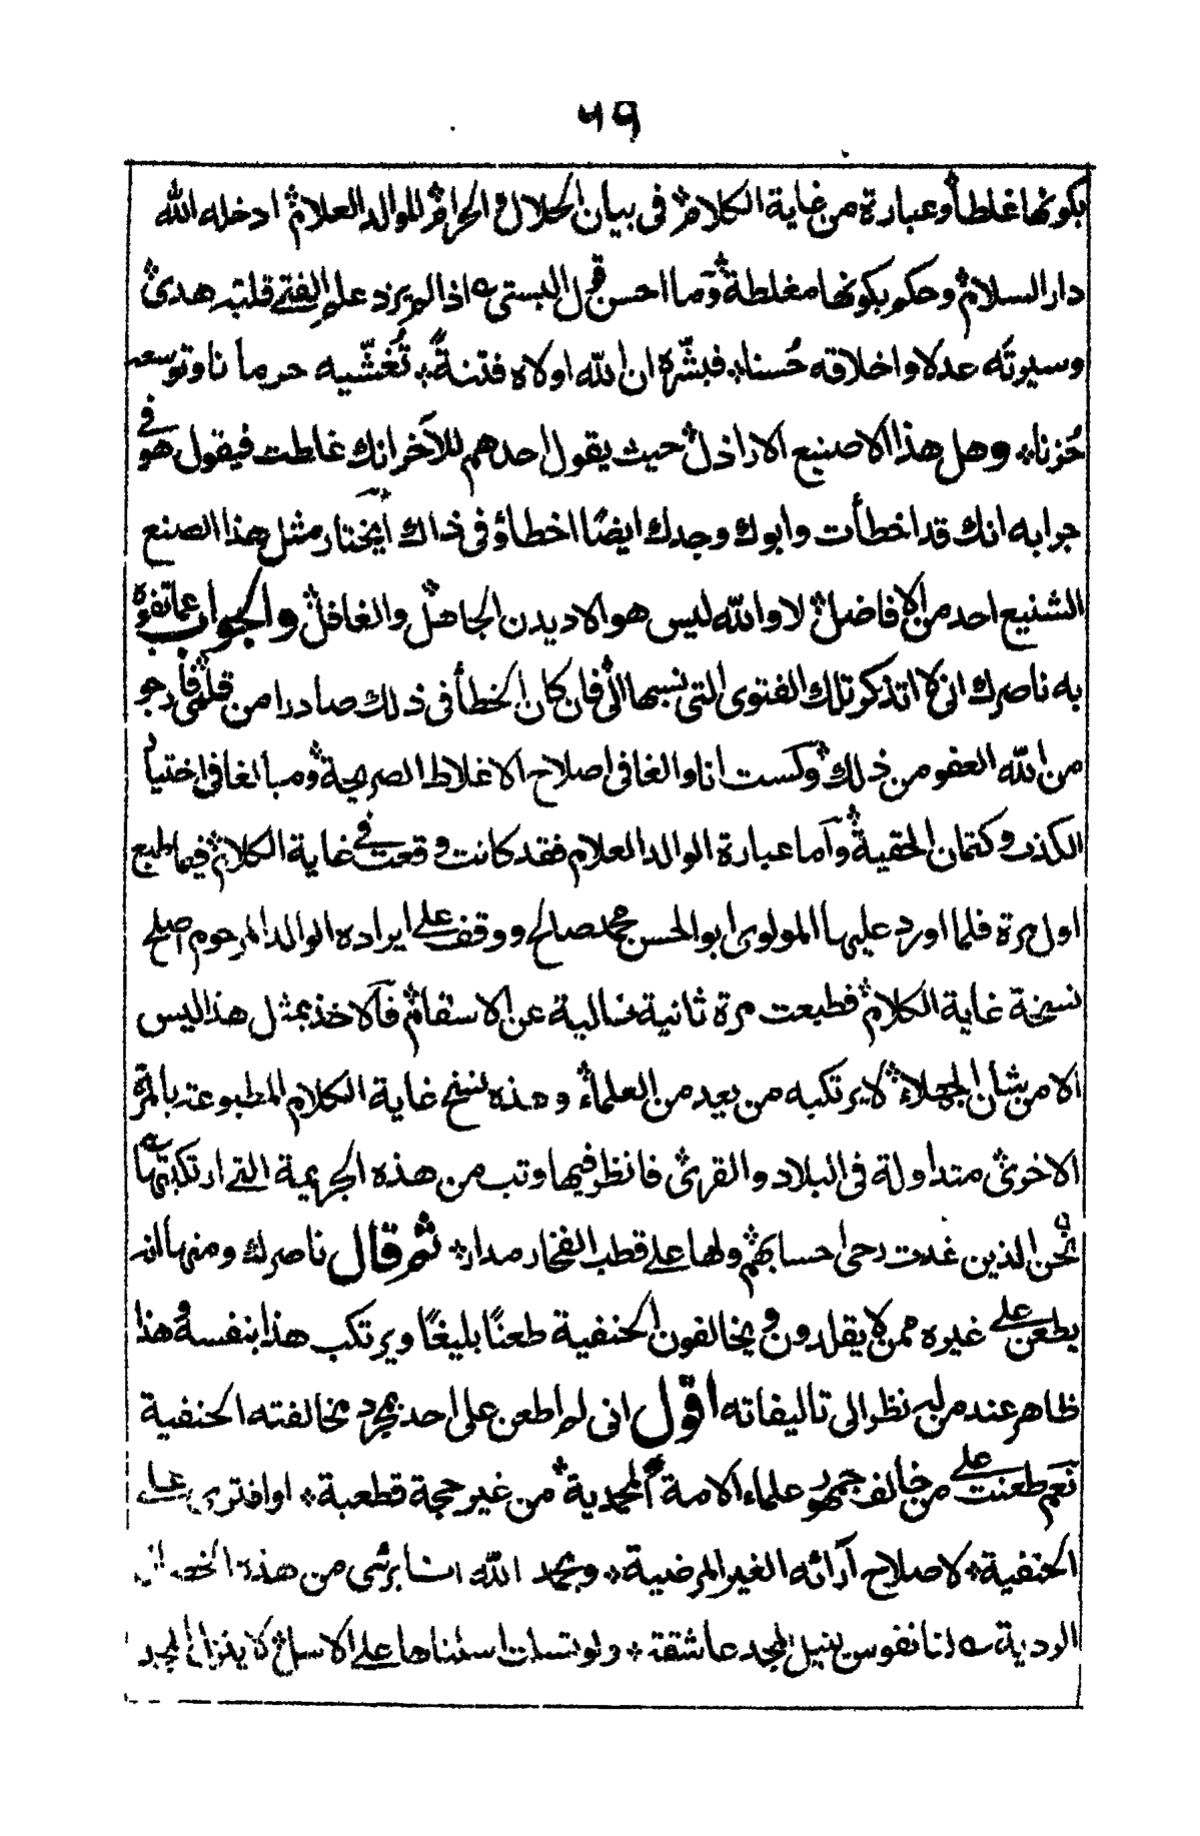 ٥٩
بكونها غلطا وعبارة من غاية الكلام في بيان الحلال والحرام للوالد العلام ادخله الله
دار السلام وحكم بكونها مغلطة وما احسن قول البستي اذا لم يزد علم الفتى قلبه هدى
وسيرته عدلا واخلاقه حُسنا فبشّره ان الله اولاه فتنةً تُغشّيه حرمانا وتوسعه
حُزنا وهل هذا الا صنيع الاراذل حيث يقول احدهم للآخر انك غلطت فيقول هو في
جوابه انك قد اخطأت وابوك وجدك ايضًا اخطاؤ في ذاك أيختار مثل هذا الصنع
الشنيع احد من الافاضل لا والله ليس هو الا ديدن الجاهل والغافل والجواب عما تفوه
به ناصرك اني لا اتذكر تلك الفتوى التي نسبها الي فان كان الخطأ في ذلك صادرا من قلمي فارجو
من الله العفو من ذلك ولست انا والغا في اصلاح الاغلاط الصريحة ومبالغا في اختيار
الكذب وكتمان الحقية وآما عبارة الوالد العلام فقد كانت وقعت في غاية الكلام فيما طبع
اول مرة فلما اورد عليها المولوي ابو الحسن محمد صالح ووقف على ايراده الوالد المرحوم اصلح
نسخة غاية الكلام فطبعت مرة ثانية خالية عن الاسقام فآلاخذ بمثل هذا ليس
الا من شان الجهلاء لا يرتكبه من يعد من العلماء وهذه نسخ غاية الكلام المطبوعة بالمرة
الاخرى متداولة في البلاد والقرى فانظر فيها وتب من هذه الجريمة التي ارتكبتها
نحن الذين غدت رحى احسابهم ولها على قطب الفخار مدار ثم قال ناصرك ومنها انه
يطعن على غيره ممن لا يقلدون ويخالفون الحنفية طعنًا بليغًا ويرتكب هذا بنفسه وهذا
ظاهر عند من له نظر الى تاليفاته اقول اني لم اطعن على احد بمجرد مخالفته الحنفية
نعم طعنت على من خالف جمهور علماء الامة المحمدية من غير حجة قطعية او افترى على
الحنفية لاصلاح آرائه الغير المرضية وبحمد الله انا برئ من هذه الخصائل
الردية لنا نفوس بنيل المجد عاشقة ولو تسلت اسلناها على الاسل لا ينزل المجد